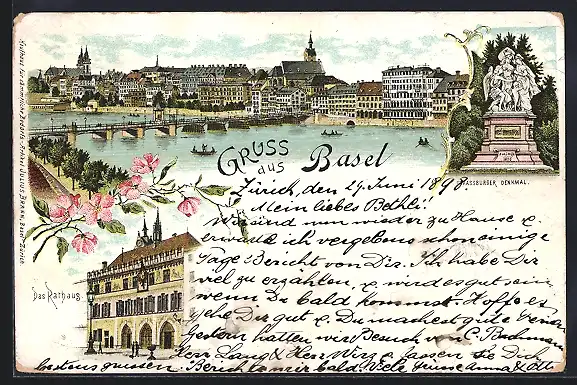 Kaufhaus für sämmtlichen Bedarfs-Artikel JULIUS BRANN, Basel-Zürich.
GRUSS aus Basel
STRASSBURGER DENKMAL.
Das Rathaus.
Zürich, den 29. Juni 1898
Mein liebes Bethli!
Wir sind nun wieder zu Hause &
erwarte ich vergebens schon einige
Tage Bericht von Dir. Ich habe Dir
viel zu erzählen, & wird es gut sein
wenn Du bald kommst. Hoffe es
gehe Dir gut & Du machest gute Ferien
gestern hatten wir Besuch von C. Bachmann
Herr Lang & Herr Wirz & lassen sie Dich
bestens grüssen. Berichte mir bald. Viele Grüsse Anna &